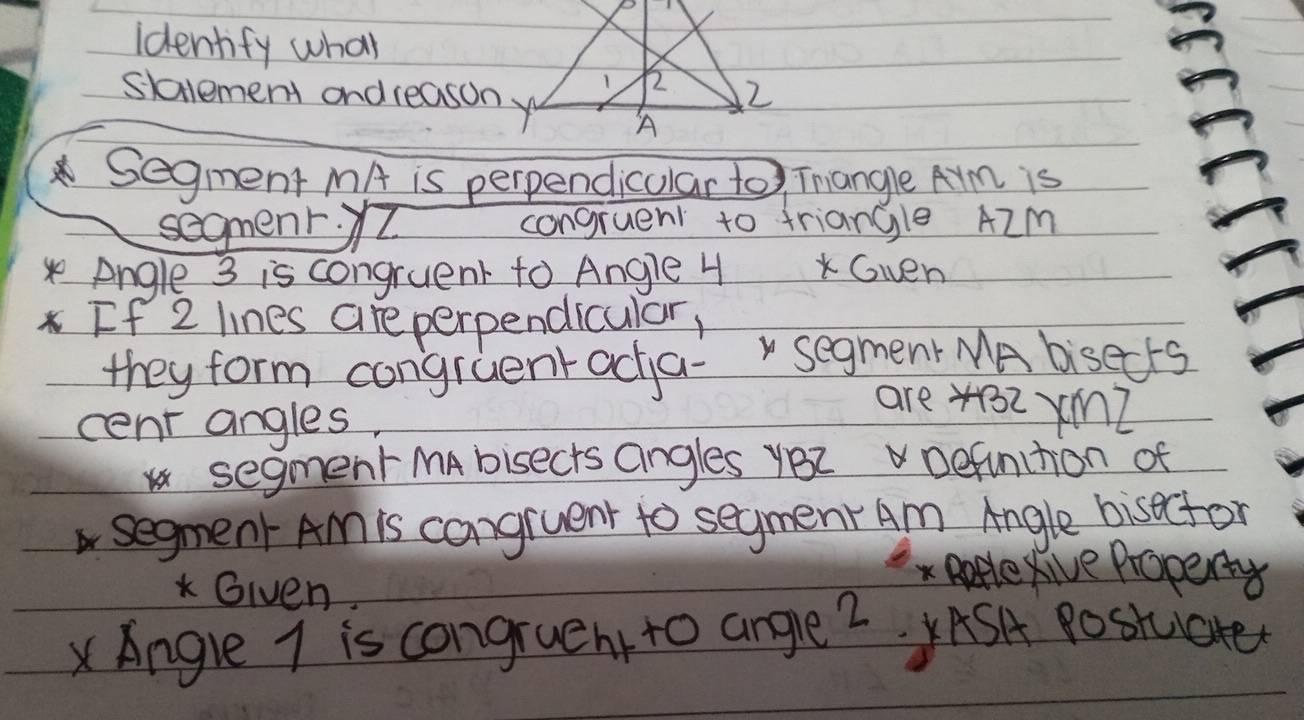 Identify what
Statement and reason
3 4
1 2
Y A Z
* Segment MA is perpendicular to, Triangle AYM is
segment. YZ congruent to triangle AZM
* Angle 3 is congruent to Angle 4 * Given
* If 2 lines are perpendicular,
they form congruent adja- * segment MA bisects
cent angles. are YMZ
* segment MA bisects angles YBZ * Definition of
* segment AM is congruent to segment AM Angle bisector
* Given. * Reflexive Property
* Angle 1 is congruent to angle 2. * ASA Postulate